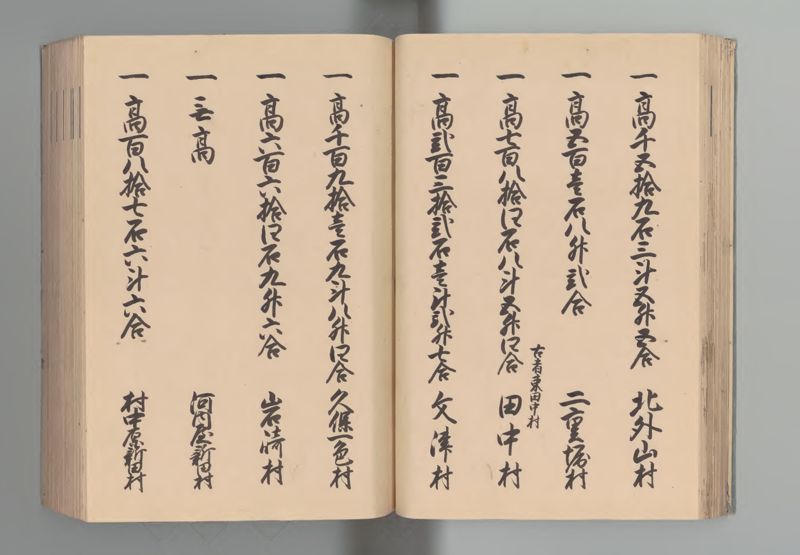 一 高千五拾九石三斗五升五合 北外山村
一 高五百壱石八升弐合 二重堀村
一 高七百八拾四石八斗五升四合 古者東田中村 田中村
一 高弐百三拾弐石壱斗弐升七合 文津村
一 高千百九拾壱石九斗八升四合 久保一色村
一 高六百六拾四石九升六合 岩崎村
一 無高 河内屋新田村
一 高百八拾七石六斗六合 村中原新田村